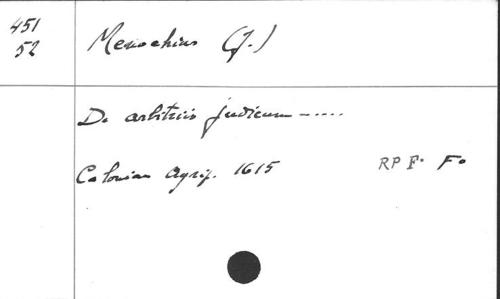 451
52
Menochius (J.)
De arbitriis judicum -....
Coloniae Agrip. 1615
RP F. Fo